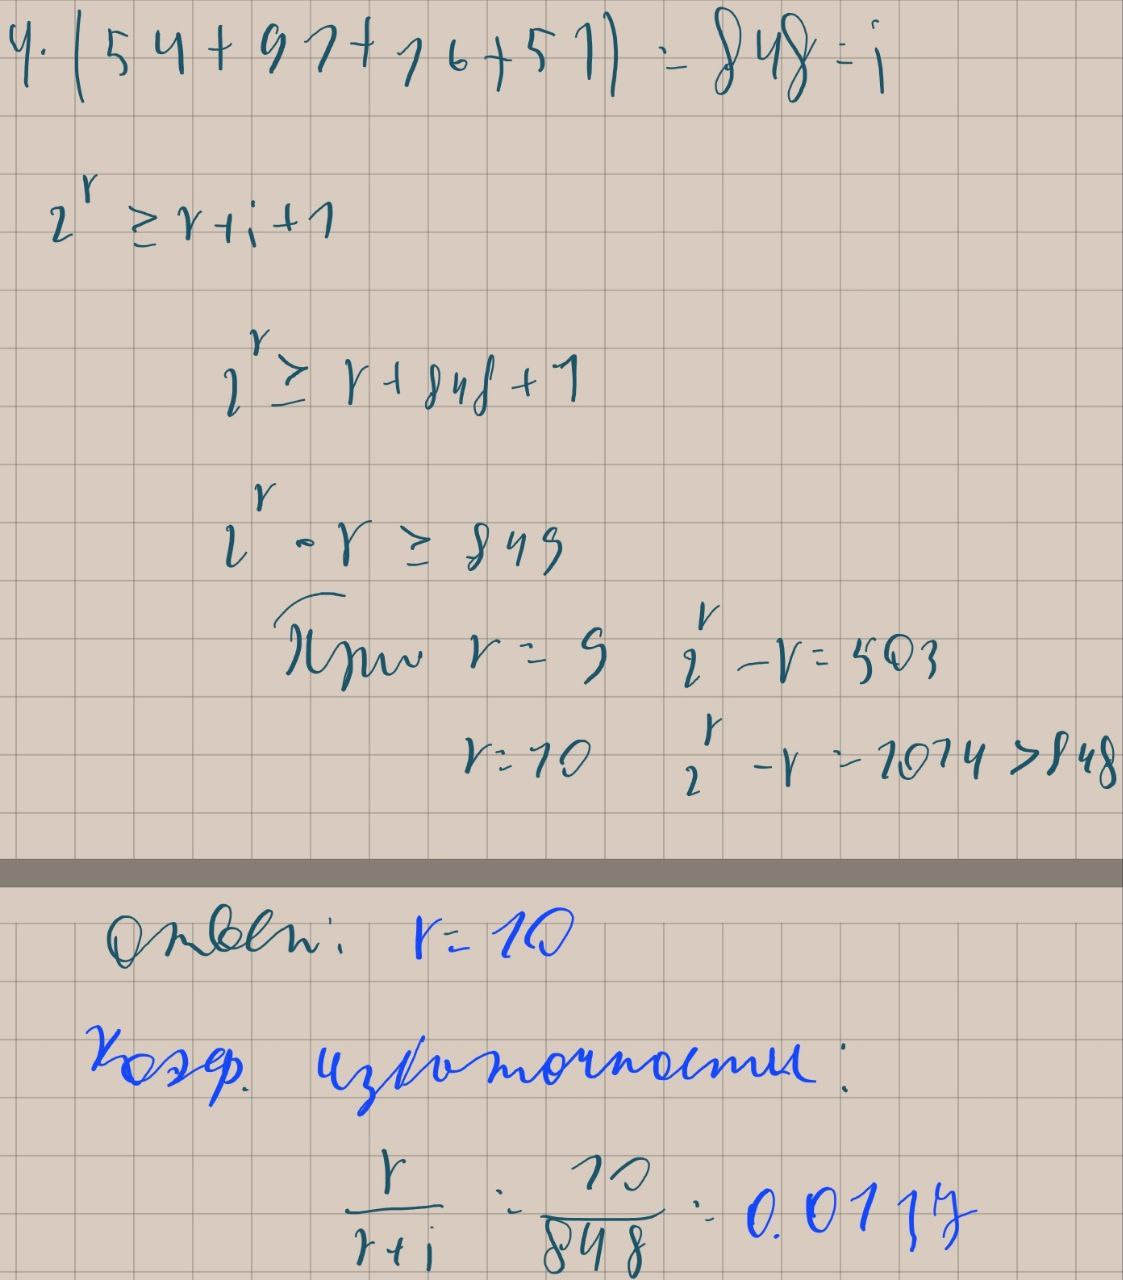 4. (54+91+16+51) = 848 = i
2^r ≥ r+i+1
2^r ≥ r+848+1
2^r - r ≥ 849
При r = 9 2^r - r = 503
r = 10 2^r - r = 1014 > 848
Ответ: r = 10
Коэф. избыточности:
r/(r+i) = 10/848 = 0.0117